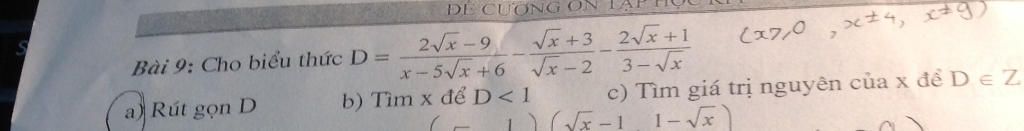 ĐỀ CƯƠNG ÔN TẬP HỌC
Bài 9: Cho biểu thức D = (2√x − 9)/(x − 5√x + 6) − (√x + 3)/(√x − 2) − (2√x + 1)/(3 − √x) (x≥0, x≠4, x≠9)
a) Rút gọn D b) Tìm x để D < 1 c) Tìm giá trị nguyên của x để D ∈ Z
√x − 1 1 − √x